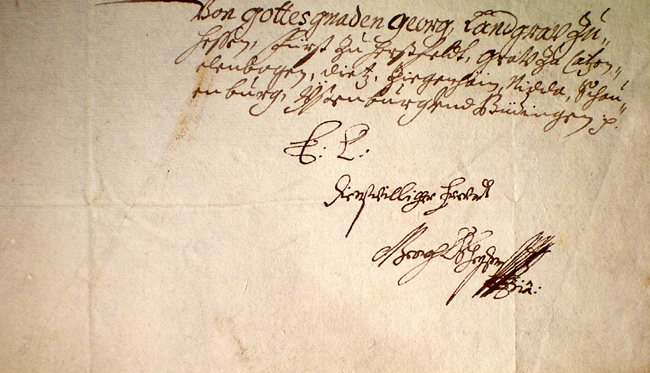 Von Gottes gnaden Georg, Landgrav Zu-
Hessen, Fürst Zu Herßfeldt, Grave Zu Catzen-
elenbogen, Dietz, Ziegenhain, Nidda, Schau-
enburg, Ysenburg vnd Büdingen p.
E: L:
Dienstwilliger
Georg